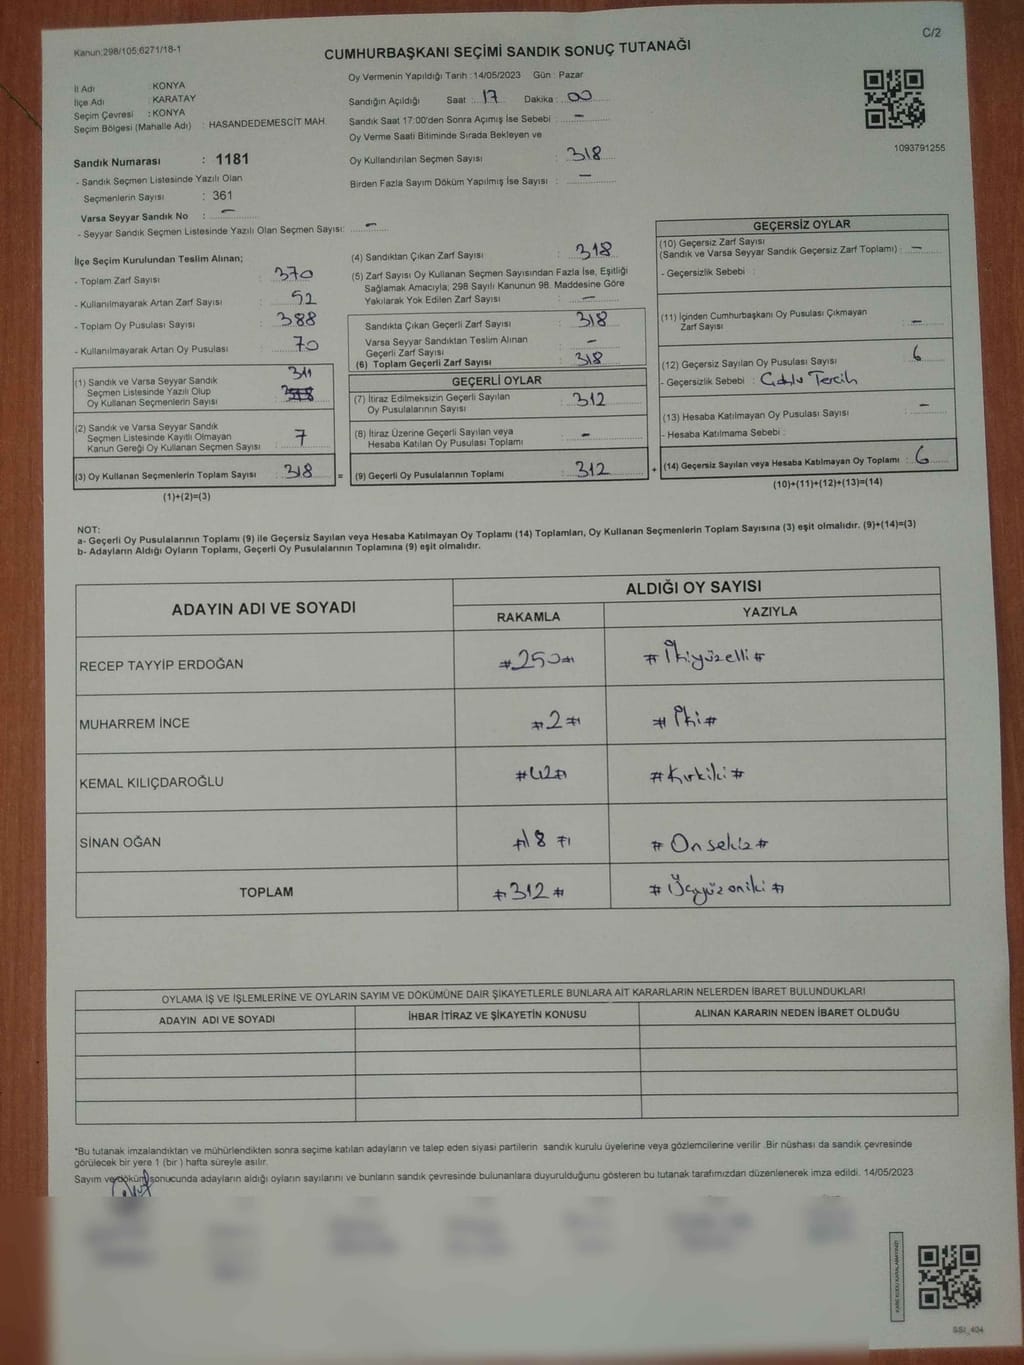 Kanun:298/105;6271/18-1
C/2
CUMHURBAŞKANI SEÇİMİ SANDIK SONUÇ TUTANAĞI
İl Adı : KONYA
İlçe Adı : KARATAY
Seçim Çevresi : KONYA
Seçim Bölgesi (Mahalle Adı) : HASANDEDEMESCİT MAH.
Sandık Numarası : 1181
- Sandık Seçmen Listesinde Yazılı Olan
Seçmenlerin Sayısı : 361
Varsa Seyyar Sandık No : -
- Seyyar Sandık Seçmen Listesinde Yazılı Olan Seçmen Sayısı: -
Oy Vermenin Yapıldığı Tarih :14/05/2023 Gün : Pazar
Sandığın Açıldığı Saat : 17 Dakika : 00
Sandık Saat 17:00'den Sonra Açımış İse Sebebi : -
Oy Verme Saati Bitiminde Sırada Bekleyen ve
Oy Kullandırılan Seçmen Sayısı : 318
Birden Fazla Sayım Döküm Yapılmış İse Sayısı : -
1093791255
İlçe Seçim Kurulundan Teslim Alınan;
- Toplam Zarf Sayısı : 370
- Kullanılmayarak Artan Zarf Sayısı : 52
- Toplam Oy Pusulası Sayısı : 388
- Kullanılmayarak Artan Oy Pusulası : 70
(1) Sandık ve Varsa Seyyar Sandık
Seçmen Listesinde Yazılı Olup
Oy Kullanan Seçmenlerin Sayısı : 311
(2) Sandık ve Varsa Seyyar Sandık
Seçmen Listesinde Kayıtlı Olmayan
Kanun Gereği Oy Kullanan Seçmen Sayısı : 7
(3) Oy Kullanan Seçmenlerin Toplam Sayısı : 318 =
(1)+(2)=(3)
(4) Sandıktan Çıkan Zarf Sayısı : 318
(5) Zarf Sayısı Oy Kullanan Seçmen Sayısından Fazla İse, Eşitliği
Sağlamak Amacıyla; 298 Sayılı Kanunun 98. Maddesine Göre
Yakılarak Yok Edilen Zarf Sayısı : -
Sandıkta Çıkan Geçerli Zarf Sayısı : 318
Varsa Seyyar Sandıktan Teslim Alınan
Geçerli Zarf Sayısı : -
(6) Toplam Geçerli Zarf Sayısı : 318
GEÇERLİ OYLAR
(7) İtiraz Edilmeksizin Geçerli Sayılan
Oy Pusulalarının Sayısı : 312
(8) İtiraz Üzerine Geçerli Sayılan veya
Hesaba Katılan Oy Pusulası Toplamı : -
(9) Geçerli Oy Pusulalarının Toplamı : 312 +
GEÇERSİZ OYLAR
(10) Geçersiz Zarf Sayısı
(Sandık ve Varsa Seyyar Sandık Geçersiz Zarf Toplamı) : -
- Geçersizlik Sebebi :
(11) İçinden Cumhurbaşkanı Oy Pusulası Çıkmayan
Zarf Sayısı : -
(12) Geçersiz Sayılan Oy Pusulası Sayısı : 6
- Geçersizlik Sebebi : Çoklu Tercih
(13) Hesaba Katılmayan Oy Pusulası Sayısı : -
- Hesaba Katılmama Sebebi :
(14) Geçersiz Sayılan veya Hesaba Katılmayan Oy Toplamı : 6
(10)+(11)+(12)+(13)=(14)
NOT:
a- Geçerli Oy Pusulalarının Toplamı (9) ile Geçersiz Sayılan veya Hesaba Katılmayan Oy Toplamı (14) Toplamları, Oy Kullanan Seçmenlerin Toplam Sayısına (3) eşit olmalıdır. (9)+(14)=(3)
b- Adayların Aldığı Oyların Toplamı, Geçerli Oy Pusulalarının Toplamına (9) eşit olmalıdır.
ADAYIN ADI VE SOYADI
ALDIĞI OY SAYISI
RAKAMLA YAZIYLA
RECEP TAYYİP ERDOĞAN #250# #İkiyüzelli#
MUHARREM İNCE #2# #İki#
KEMAL KILIÇDAROĞLU #42# #Kırkiki#
SİNAN OĞAN #18# #Onsekiz#
TOPLAM #312# #Üçyüzoniki#
OYLAMA İŞ VE İŞLEMLERİNE VE OYLARIN SAYIM VE DÖKÜMÜNE DAİR ŞİKAYETLERLE BUNLARA AİT KARARLARIN NELERDEN İBARET BULUNDUKLARI
ADAYIN ADI VE SOYADI İHBAR İTİRAZ VE ŞİKAYETİN KONUSU ALINAN KARARIN NEDEN İBARET OLDUĞU
*Bu tutanak imzalandıktan ve mühürlendikten sonra seçime katılan adayların ve talep eden siyasi partilerin sandık kurulu üyelerine veya gözlemcilerine verilir .Bir nüshası da sandık çevresinde
görülecek bir yere 1 (bir ) hafta süreyle asılır.
Sayım ve döküm sonucunda adayların aldığı oyların sayılarını ve bunların sandık çevresinde bulunanlara duyurulduğunu gösteren bu tutanak tarafımızdan düzenlenerek imza edildi. 14/05/2023
KARE KODU KARALAMAYINIZ!
SSİ_404